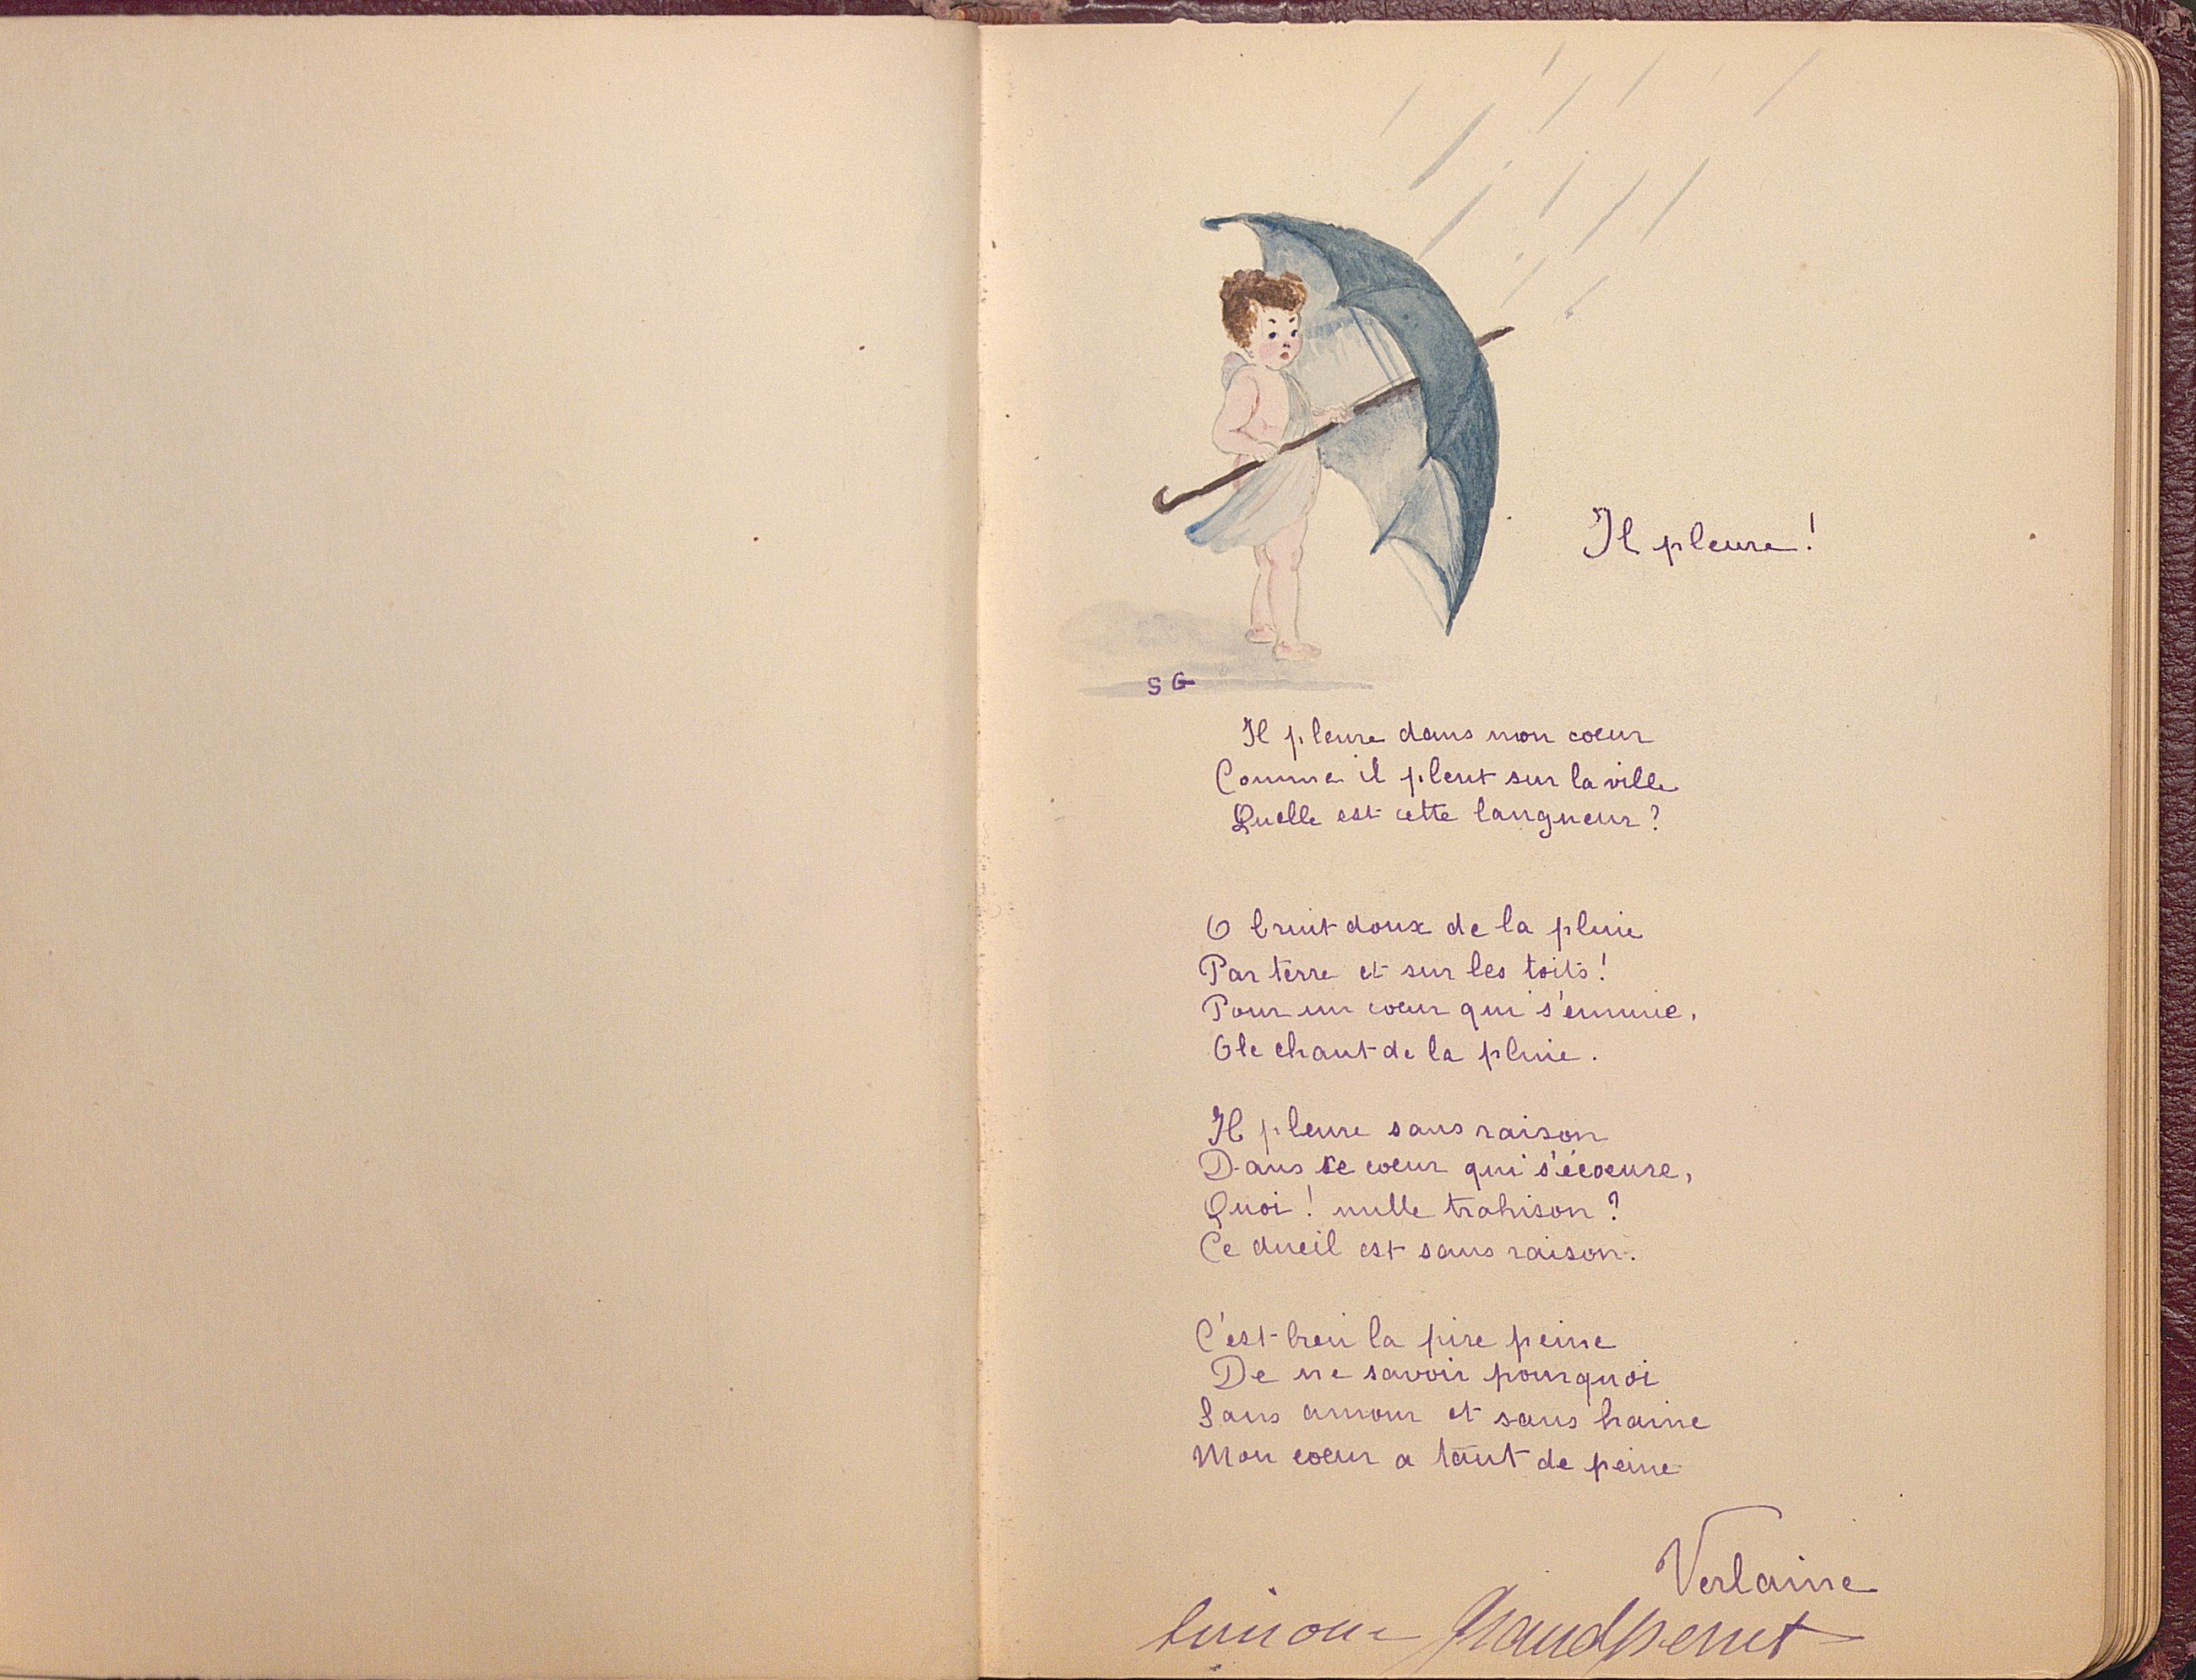 Il pleure !
S G
Il pleure dans mon coeur
Comme il pleut sur la ville
Quelle est cette langueur ?
O bruit doux de la pluie
Par terre et sur les toits !
Pour un coeur qui s'ennuie,
O le chant de la pluie .
Il pleure sans raison
Dans ce coeur qui s'écoeure,
Quoi ! nulle trahison ?
Ce dueil est sans raison.
C'est bien la pire peine
De ne savoir pourquoi
Sans amour et sans haine
Mon coeur a tant de peine
Verlaine
Simone Grandperret